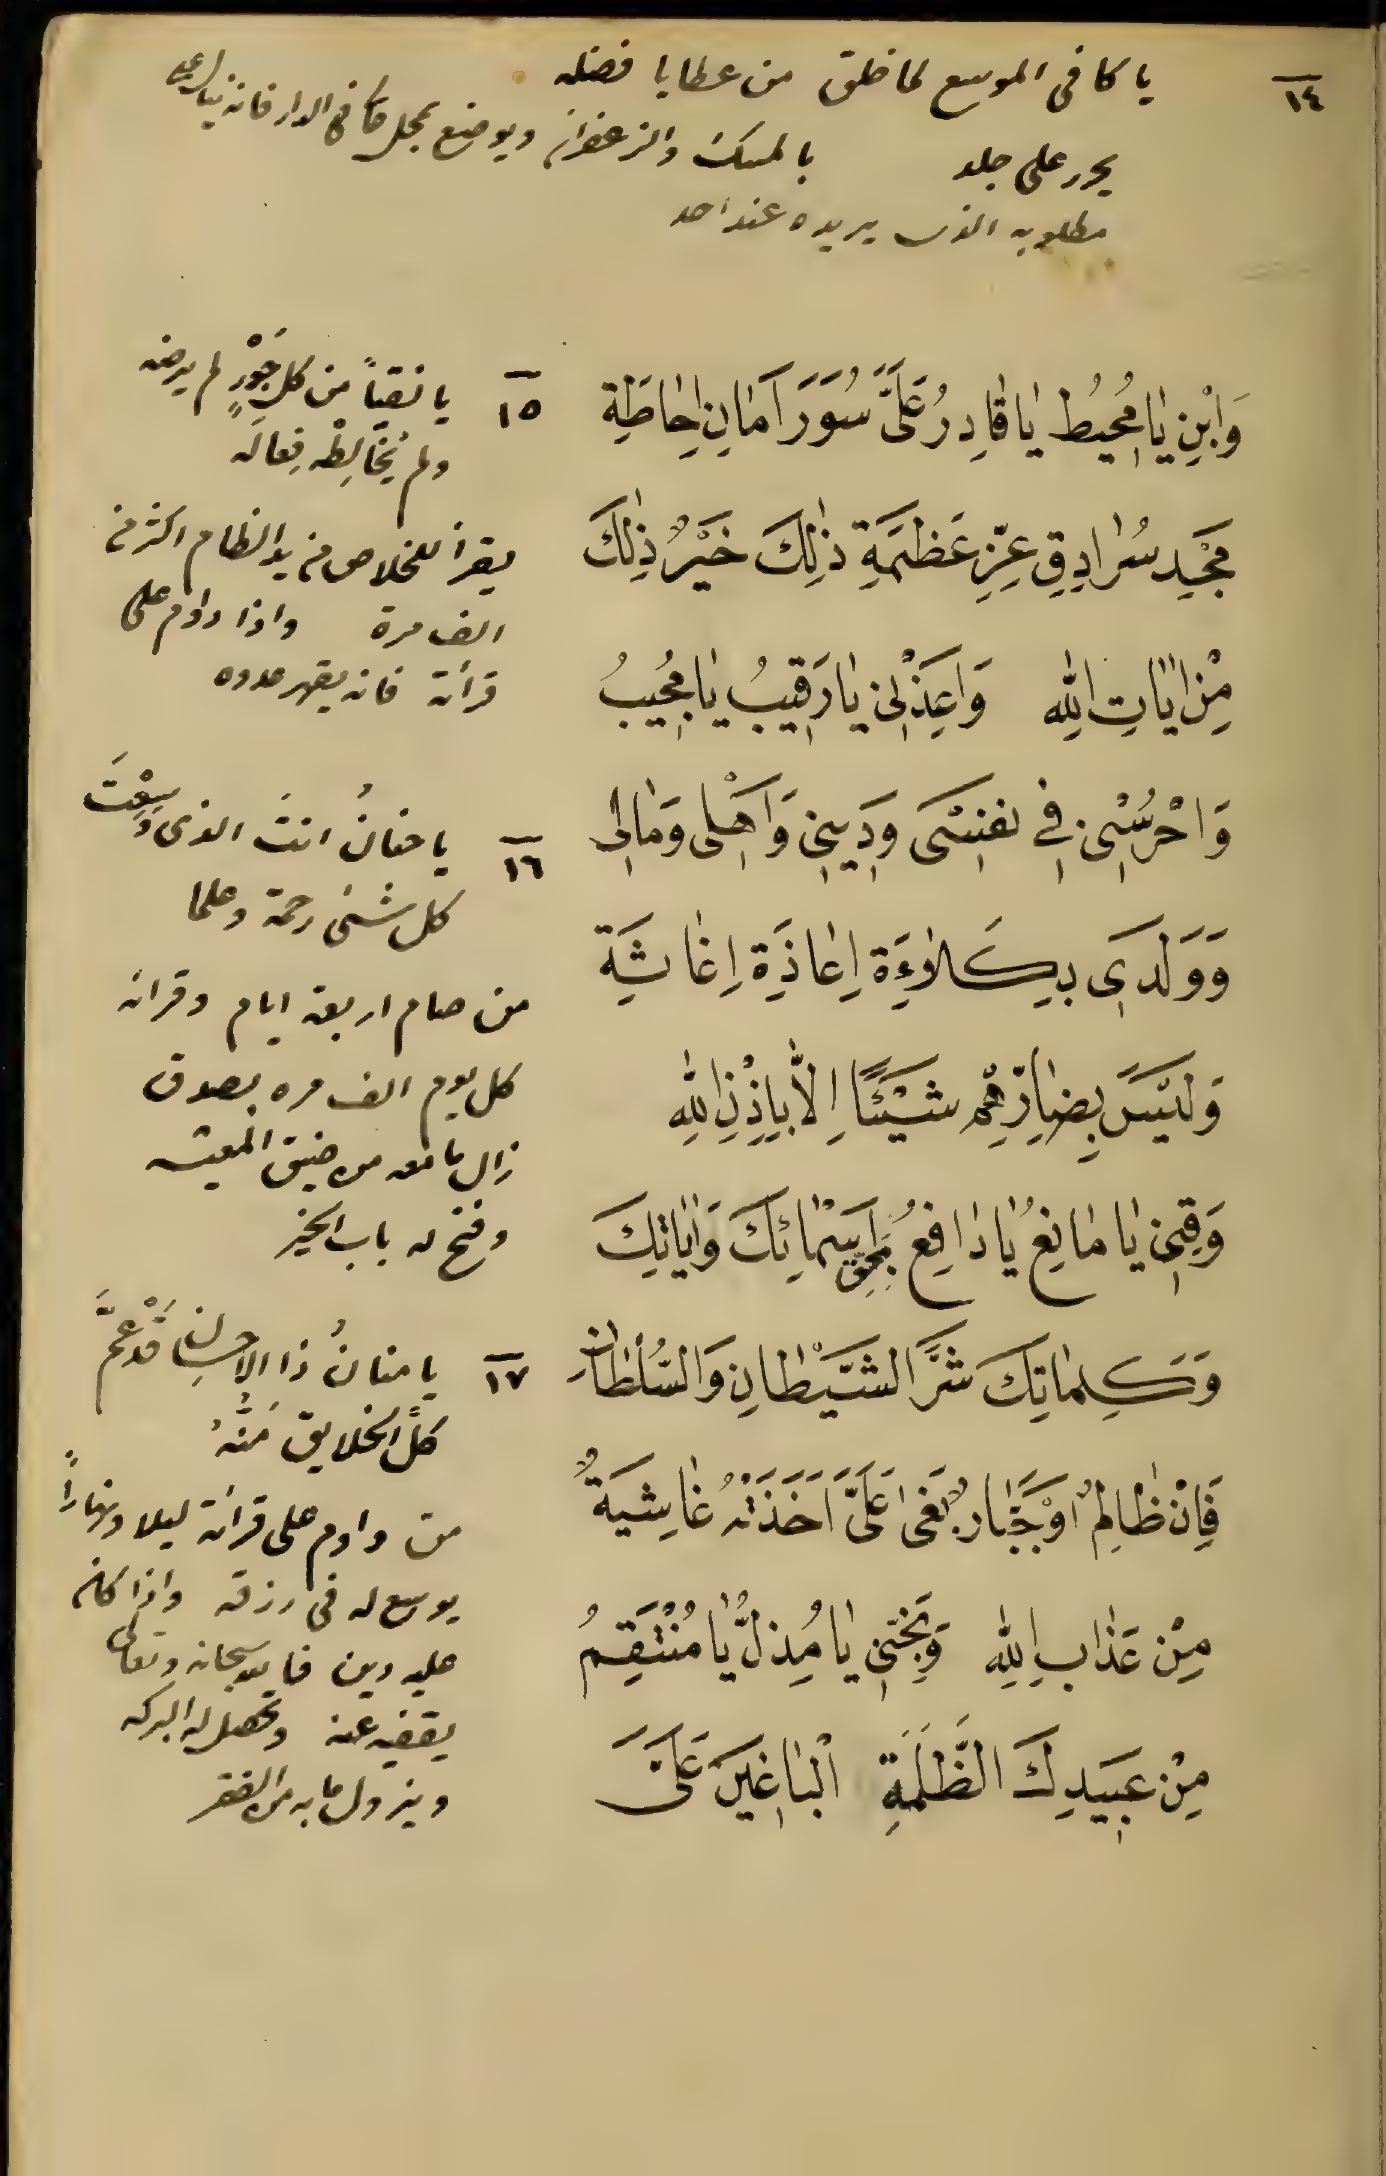 ١٤ يا كافى الموسع لما خلق من عطايا فضله
يحرر على جلد بالمسك والزعفران ويوضع بمحل ما فى الدار فانه
مطلوبه الذى يريده عند احد
وَابْنِ يَا مُحيُطُ يَا قَادِرُ عَلَىَّ سُورَ اَمَانِ اِحَاطَةِ
مَجْدِ سُرَادِقِ عِزِّ عَظَمَةِ ذٰلِكَ خَيْرٌ ذٰلِكَ
مِنْ اٰيَاتِ اللهِ وَاَعِذْنِى يَا رَقِيبُ يَا مُجِيبُ
وَاحْرُسْنِى فِى نَفْسَى وَدِينِى وَاَهْلِى وَمَالِى
وَوَلَدَى بِكَلَاءَةِ اِعَاذَةِ اِغَاثَةِ
وَلَيْسَ بِضَارِّهِمْ شَيْئًا اِلَّا بِاِذْنِ اللهِ
وَقِنِى يَا مَانِعُ يَا دَافِعُ بِحَقِّ اَسْمَائِكَ وَاٰيَاتِكَ
وَكَلِمَاتِكَ شَرَّ الشَّيْطَانِ وَالسُّلْطَانِ
فَاِنْ ظَالِمٌ اَوْ جَبَّارٌ بَغَى عَلَىَّ اَخَذَتْهُ غَاشِيَةٌ
مِنْ عَذَابِ اللهِ وَنَجِّنِى يَا مُذِلُّ يَا مُنْتَقِمُ
مِنْ عَبِيدِكَ الظَّلَمَةِ الْبَاغِينَ عَلَىَّ
١٥ يا نقياً من كل جَوْرٍ لم يرضه
ولم يُخَالِطْه فِعَالَه
يقرأ للخلاص من يد الظالم اكثر من
الف مرة واذا داوم على
قرأته فانه يقهر عدوه
١٦ يا حنانُ انتَ الذى وَسِعْتَ
كل شئى رحمة وعلما
من صام اربعة ايام وقرأنه
كل يوم الف مره بصدق
زال ما معه من ضيق المعيشه
وفتح له باب الخير
١٧ يا منانُ ذا الاحسان قَدْ عَمَّ
كلَّ الخلايق مَنُّهُ
من داوم على قرأته ليلا ونهاراً
يوسع له فى رزقه واذا كان
عليه دين فالله سبحانه وتعالى
يقضيه عنه وتحصل له البركه
ويزول ما به من الفقر